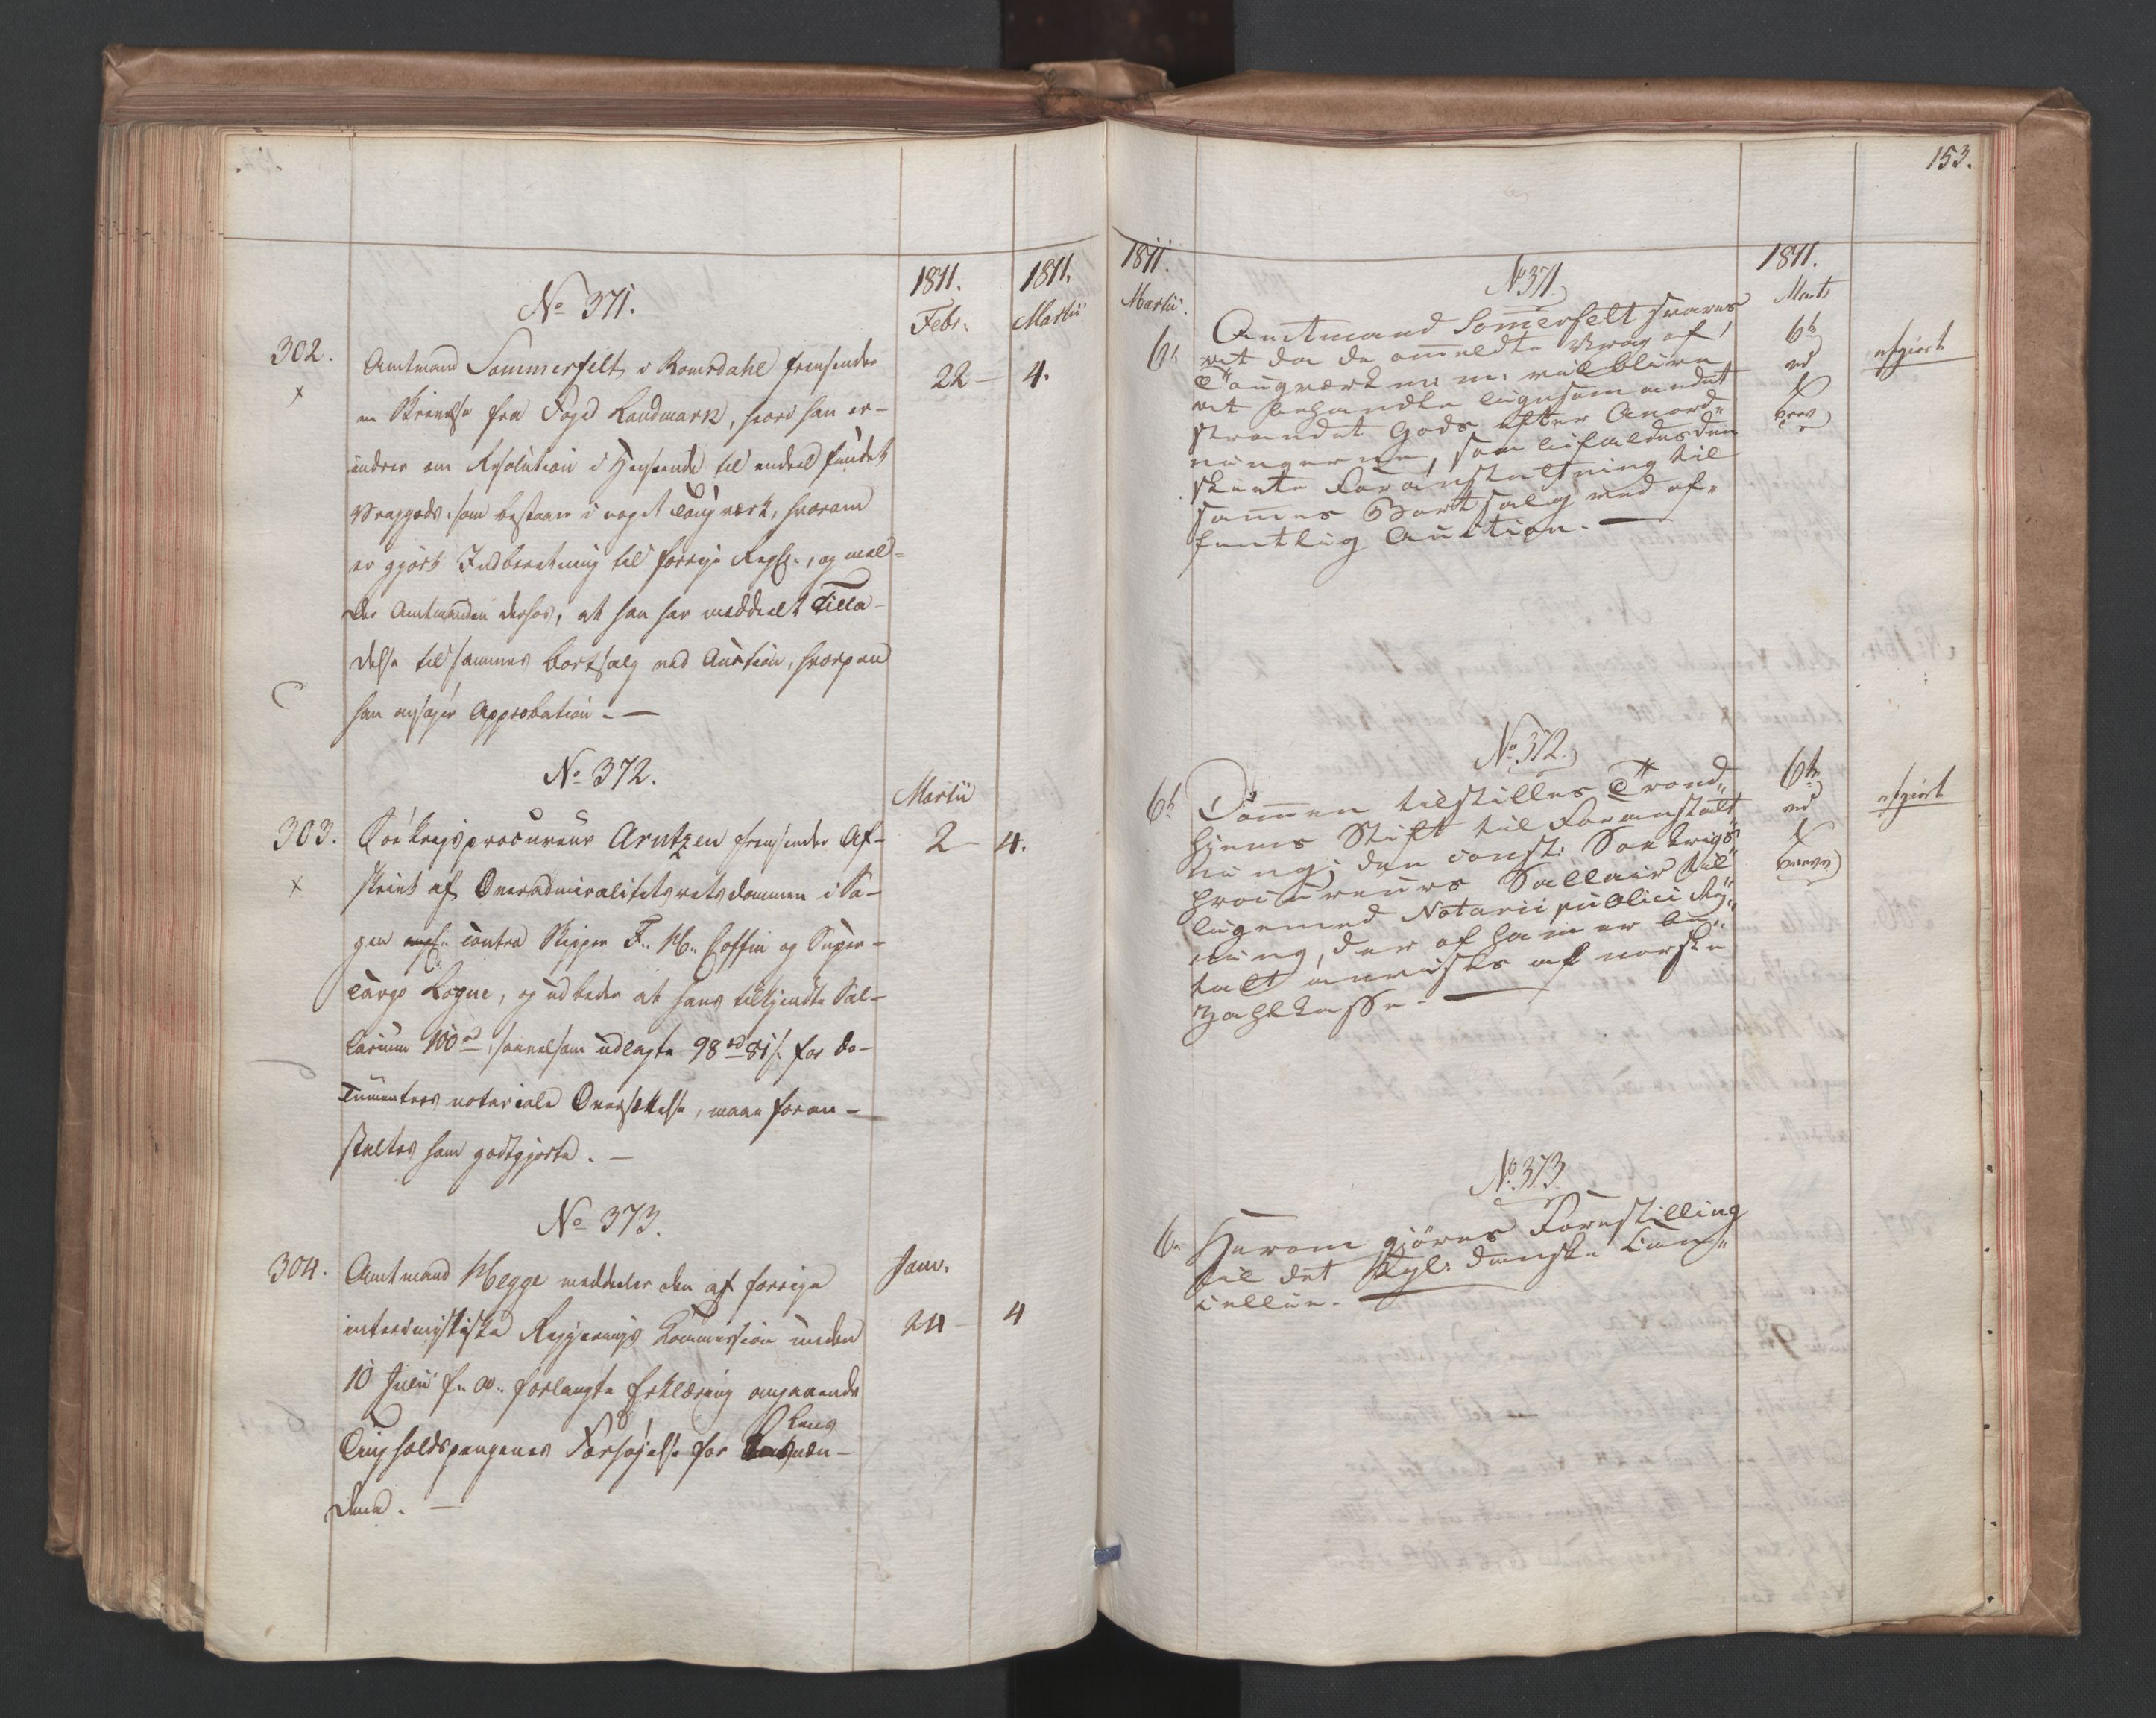 No 371.
1811.
Febr.
1811.
Martii
302.
Amtmand Sommerfelt i Romsdahl fremsender
22 —
4.
en Skrivelse fra Foged Landmark, hvori han er-
indrer om Resolution i Henseende til endeel fundet
Vraggods, som bestaaer i noget Tougværk, hvorom
er gjort Indberetning til forrige Regjs., og mel-
der Amtmanden derhos, at han har meddeelt Tilla-
delse til sammes Bortsalg ved Auction, hvorpaa
han ansøger Approbation. —
No 372.
Martii
303.
Søekrigsprocureur Arntzen fremsender Af-
2 —
4.
skrivt af Overadmiralitetsretsdommen i Sa-
gen contra Skipper F. M. Coffin og Super-
cargo Logue, og udbeder at hans tilkjendte Sal-
larium 100 rd, saavelsom udlagte 98 rd 81 s. for Do-
cumenters notariale Oversættelse, maae foran-
staltes ham godtgjorte. —
No 373.
304.
Amtmand Hegge meddeler den af forrige
Janv.
interimistiske Regjerings Commission under
24 —
4
10 Julii f. A. forlangte Erklæring angaaende
Tingholdspengenes Forhøjelse for Lens
mæn-
dene. —
153.
1811.
Martii.
No 371.
1811.
Marts
6te
Amtmand Somerfelt svares
6te
ved
Brev
afgiort
at da de anmeldte Vrag af
Tougværk m: m: vil blive
at behandle ligesom andet
strandet Gods efter Anord-
ningerne, som bifaldes den
skeete Foranstaltning til
sammes Bortsalg ved of-
fentlig Auction. —
No 372.
6te
Dommen tilstilles Trond-
6te
ved
Brev
afgiort
hjems Stift til Foranstalt-
ning; den const: Søekrigs
procureurs Sallair til-
ligemed Notarii publici Reg-
ning, der af ham er be-
talt anvises af norske
Zahlkasse. —
No 373
6te
Herom gjøres Forestilling
til det Kgl: danske Can-
cellie. —